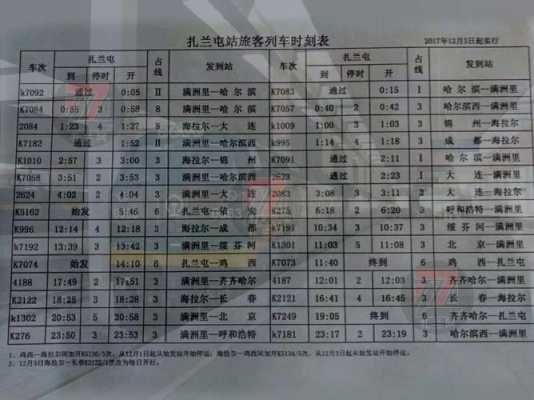 扎兰屯站旅客列车时刻表
2017年12月5日起实行
车次 扎兰屯 占线 发到站 扎兰屯 占线 发到站
到 停时 开 到 停时 开
k7092 通过 0:05 II 满洲里—哈尔滨 K7083 通过 0:15 I 哈尔滨—满洲里
K7084 0:55 3 0:58 8 满洲里—哈尔滨 K7057 0:40 2 0:42 3 哈尔滨西—满洲里
2084 1:23 4 1:27 海拉尔—大连 k1009 1:00 3 1:03 3 锦州—海拉尔
K7182 通过 1:52 II 满洲里—哈尔滨西 k995 1:14 4 1:18 3 成都—海拉尔
K1010 2:57 3 3:00 3 海拉尔—锦州 K7091 通过 2:11 I 哈尔滨—满洲里
K7058 3:51 2 3:53 3 满洲里—哈尔滨西 2623 通过 2:21 I 大连—满洲里
2624 4:02 2 4:04 3 满洲里—大连 2083 3:08 3 3:11 2 大连—海拉尔
K5162 始发 5:46 6 扎兰屯—依安 K275 6:18 2 6:20 3 呼和浩特—满洲里
K996 12:14 4 12:18 3 海拉尔—成都 k7191 10:34 3 10:37 3 绥芬河—满洲里
k7192 13:39 3 13:42 3 满洲里—绥芬河 K1301 11:03 5 11:08 3 北京—满洲里
K7074 始发 14:10 6 扎兰屯—鸡西 K7073 11:40 终到 6 鸡西—扎兰屯
4188 17:49 2 17:51 3 满洲里—齐齐哈尔 4187 12:01 2 12:03 3 齐齐哈尔—满洲里
K2122 18:25 3 18:28 3 海拉尔—长春 K2121 16:41 4 16:45 3 长春—海拉尔
k1302 20:53 5 20:58 3 满洲里—北京 K7249 19:05 终到 6 齐齐哈尔—扎兰屯
K276 23:50 3 23:53 3 满洲里—呼和浩特 k7181 23:17 2 23:19 3 哈尔滨西—满洲里